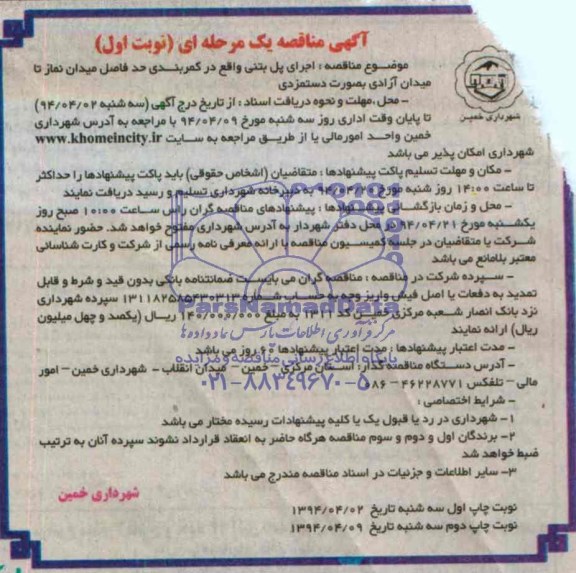 آگهی مناقصه یک مرحله ای (نوبت اول)
شهرداری خمین
موضوع مناقصه : اجرای پل بتنی واقع در کمربندی حد فاصل میدان نماز تا
میدان آزادی بصورت دستمزدی
– محل،مهلت و نحوه دریافت اسناد : از تاریخ درج آگهی (سه شنبه ۹۴/۰۴/۰۲)
تا پایان وقت اداری روز سه شنبه مورخ ۹۴/۰۴/۰۹ با مراجعه به آدرس شهرداری
خمین واحد امورمالی یا از طریق مراجعه به سایت www.khomeincity.ir
شهرداری امکان پذیر می باشد
– مکان و مهلت تسلیم پاکت پیشنهادها : متقاضیان (اشخاص حقوقی) باید پاکت پیشنهادها را حداکثر
تا ساعت ۱۴:۰۰ روز شنبه مورخ ۹۴/۰۴/۲۰ به دبیرخانه شهرداری تسلیم و رسید دریافت نمایند
– محل و زمان بازگشائی پیشنهادها : پیشنهادهای مناقصه گران راس ساعت ۱۰:۰۰ صبح روز
یکشنبه مورخ ۹۴/۰۴/۲۱ در محل دفتر شهردار به آدرس شهرداری مفتوح خواهد شد. حضور نماینده
شرکت یا متقاضیان در جلسه کمیسیون مناقصه با ارائه معرفی نامه رسمی از شرکت و کارت شناسائی
معتبر بلامانع می باشد
– سپرده شرکت در مناقصه : مناقصه گران می بایست ضمانتنامه بانکی بدون قید و شرط و قابل
تمدید به دفعات یا اصل فیش واریز وجه به حساب شماره ۱۳۱۱۸۲۵۸۵۴۳۰۳۱۳ سپرده شهرداری
نزد بانک انصار شعبه مرکزی خمین کد ۱۳۱۱ به مبلغ ۱۴۰/۰۰۰/۰۰۰ ریال (یکصد و چهل میلیون
ریال) ارائه نمایند
– مدت اعتبار پیشنهادها : مدت اعتبار پیشنهادها ۶۰ روز می باشد
– آدرس دستگاه مناقصه گذار: استان مرکزی – خمین – میدان انقلاب – شهرداری خمین – امور
مالی – تلفکس ۴۶۲۲۸۷۷۱ – ۰۸۶
– شرایط اختصاصی :
۱– شهرداری در رد یا قبول یک یا کلیه پیشنهادات رسیده مختار می باشد
۲– برندگان اول و دوم و سوم مناقصه هرگاه حاضر به انعقاد قرارداد نشوند سپرده آنان به ترتیب
ضبط خواهد شد
۳– سایر اطلاعات و جزئیات در اسناد مناقصه مندرج می باشد
شهرداری خمین
نوبت چاپ اول سه شنبه تاریخ ۱۳۹۴/۰۴/۰۲
نوبت چاپ دوم سه شنبه تاریخ ۱۳۹۴/۰۴/۰۹
ParsNamadData
مرکز فرآوری اطلاعات پارس نماد داده ها
پایگاه اطلاع رسانی مناقصه و مزایده
۰۲۱-۸۸۳۴۹۶۷۰-۵